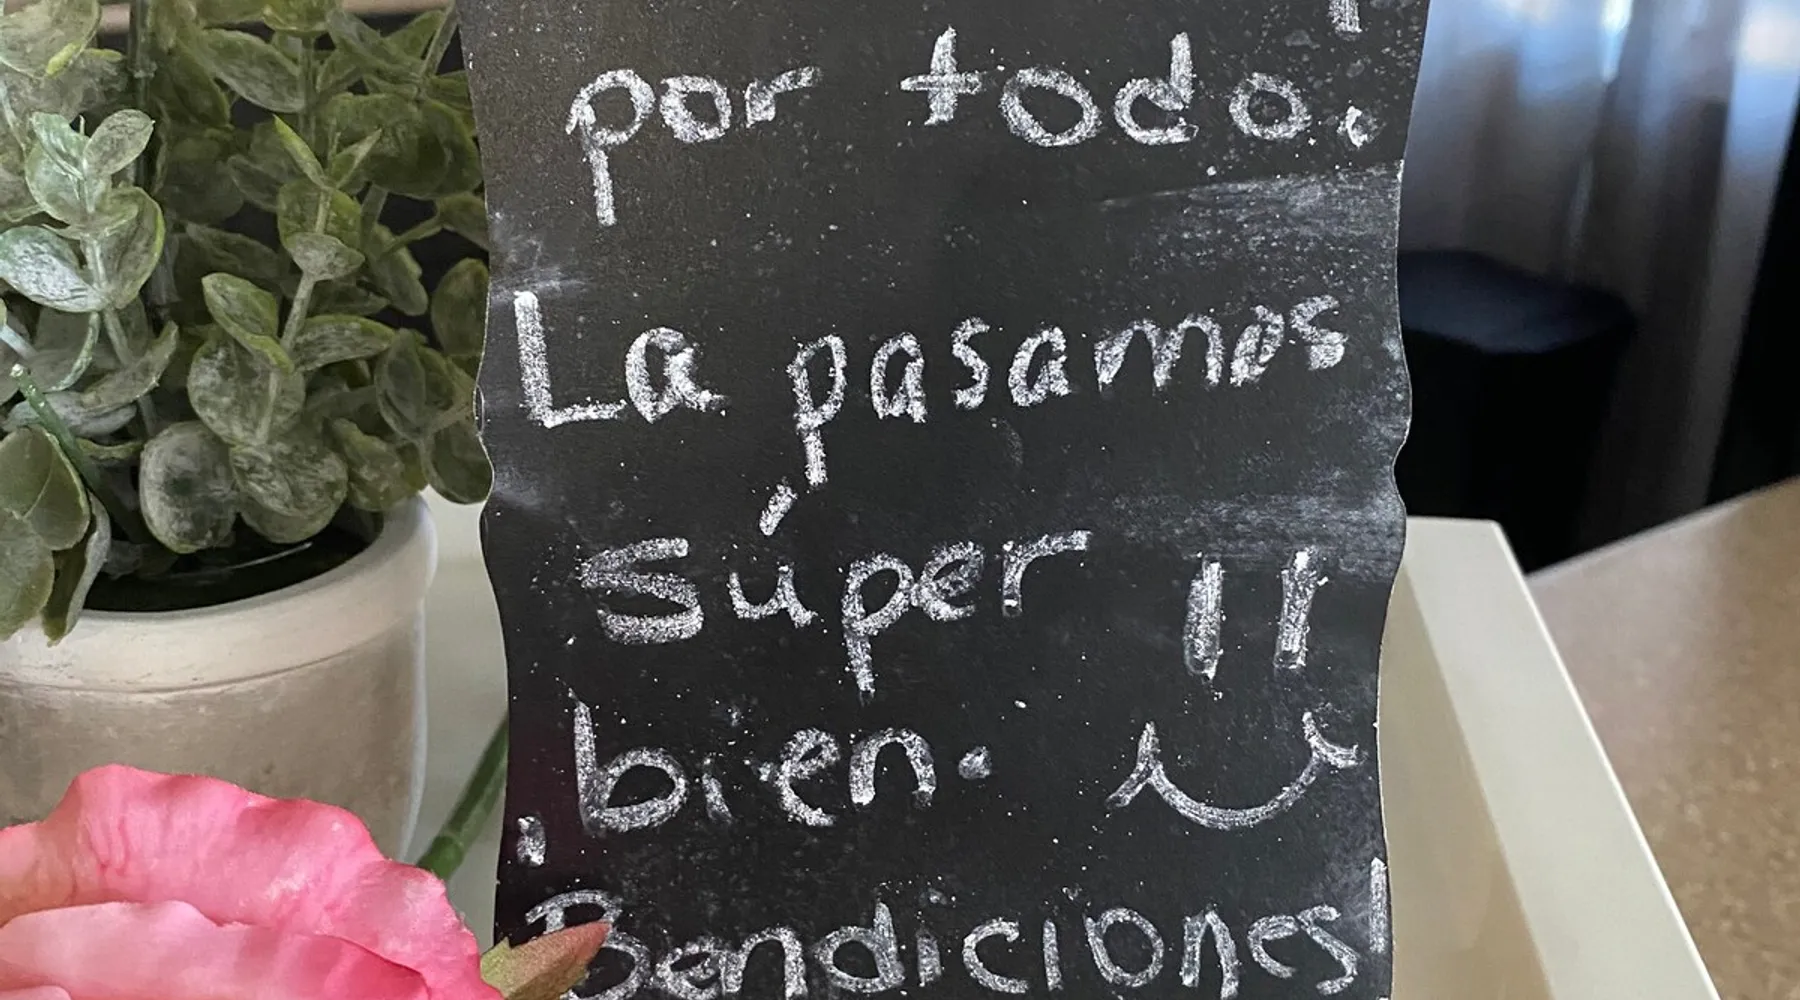 por todo.
La pasamos
súper
bien.
¡Bendiciones!